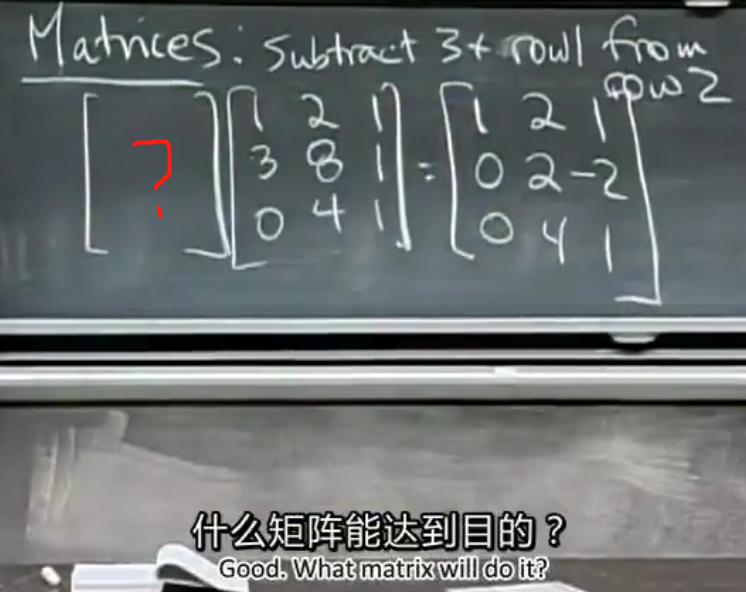 Matrices: Subtract 3× row1 from
row 2
[ ? ] [ 1 2 1 = [ 1 2 1
3 8 1 0 2 -2
0 4 1 ] 0 4 1 ]
什么矩阵能达到目的？
Good. What matrix will do it?